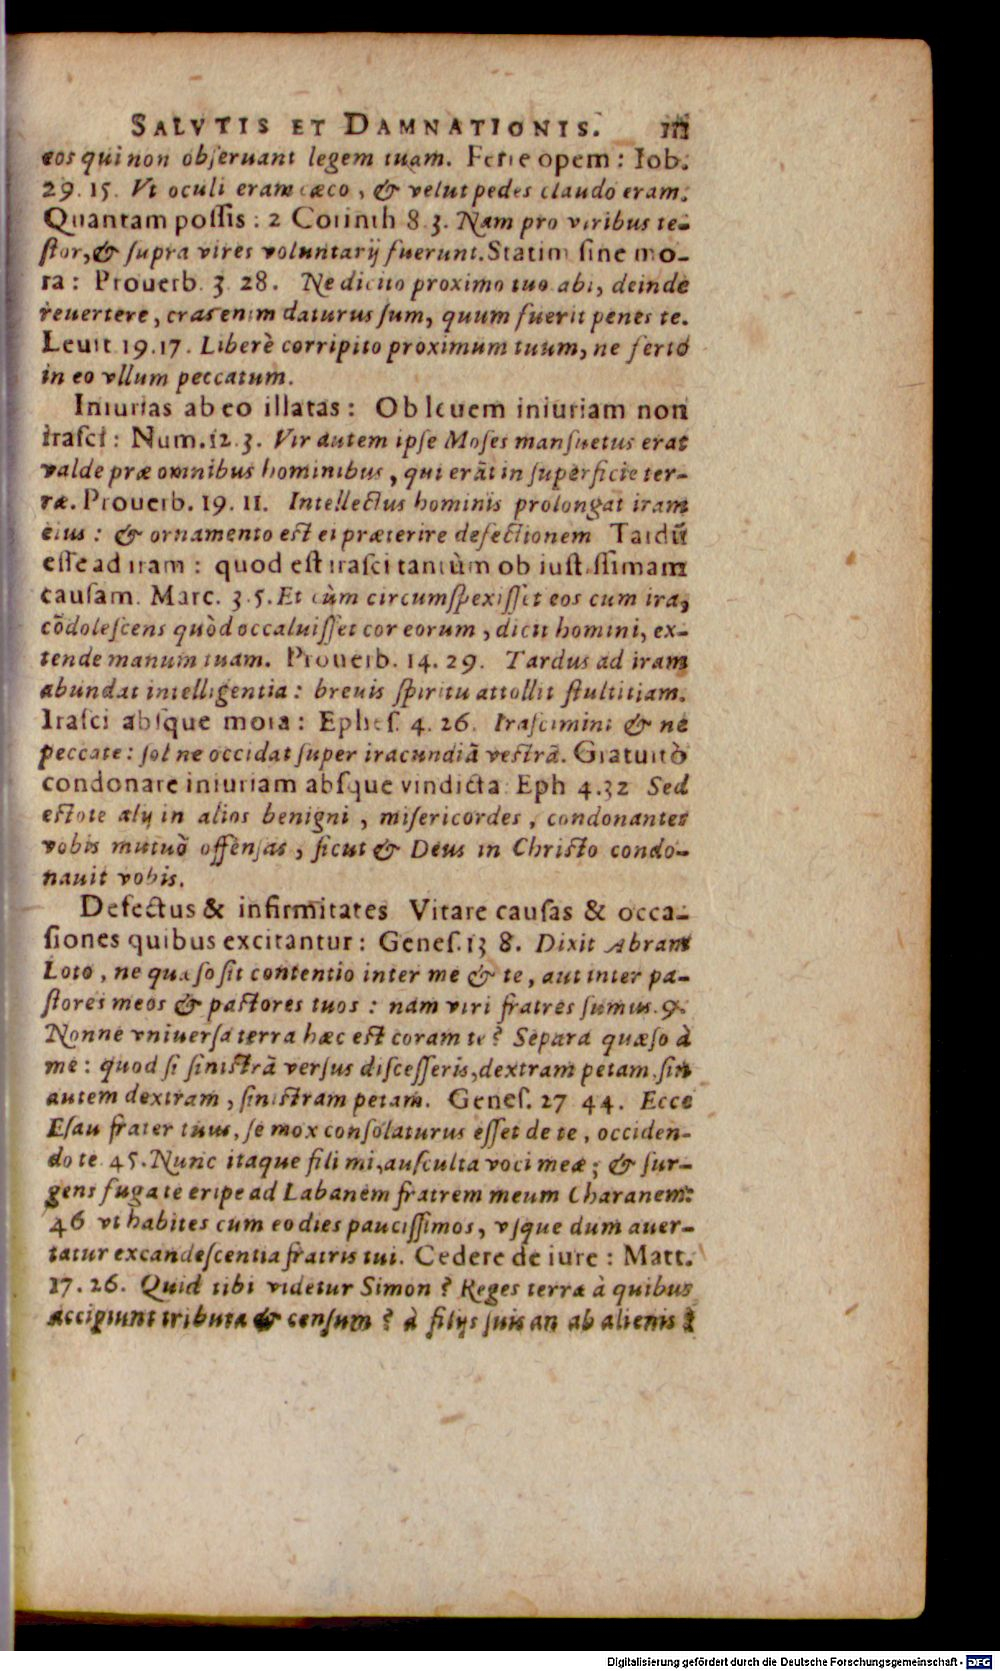 SALVTIS ET DAMNATIONIS. 111
eos qui non obſeruant legem tuam. Ferre opem: Iob.
29. 15. Vt oculi eram cæco, & velut pedes claudo eram.
Quantam poſſis: 2 Corinth 8 3. Nam pro viribus te-
ſtor, & ſupra vires voluntarij fuerunt. Statim ſine mo-
ra: Prouerb. 3. 28. Ne dicito proximo tuo abi, deinde
reuertere, cras enim daturus ſum, quum fuerit penes te.
Leuit 19. 17. Liberè corripito proximum tuum, ne ferto
in eo vllum peccatum.
Iniurias ab eo illatas: Ob leuem iniuriam non
iraſci: Num. 12. 3. Vir autem ipſe Moſes manſuetus erat
valde præ omnibus hominibus, qui erãt in ſuperficie ter-
ræ. Prouerb. 19. 11. Intellectus hominis prolongat iram
eius: & ornamento eſt ei præterire defectionem Tardũ
eſſe ad iram: quod eſt iraſci tantùm ob iuſtiſſimam
cauſam. Marc. 3. 5. Et cùm circumſpexiſſet eos cum ira,
cõdoleſcens quòd occaluiſſet cor eorum, dicit homini, ex-
tende manum tuam. Prouerb. 14. 29. Tardus ad iram
abundat intelligentia: breuis ſpiritu attollit ſtultitiam.
Iraſci abſque mora: Epheſ. 4. 26. Iraſcimini & ne
peccate: ſol ne occidat ſuper iracundiã veſtrã. Gratuitò
condonare iniuriam abſque vindicta: Eph 4. 32 Sed
eſtote alij in alios benigni, miſericordes, condonantes
vobis mutuò offenſas, ſicut & Deus in Chriſto condo-
nauit vobis.
Defectus & infirmitates Vitare cauſas & occa-
ſiones quibus excitantur: Geneſ. 13 8. Dixit Abram
Loto, ne quæſo ſit contentio inter me & te, aut inter pa-
ſtores meos & paſtores tuos: nam viri fratres ſumus. 9.
Nonne vniuerſa terra hæc eſt coram te? Separa quæſo à
me: quod ſi ſiniſtrã verſus diſceſſeris, dextram petam, ſin
autem dextram, ſiniſtram petam. Geneſ. 27 44. Ecce
Eſau frater tuus, ſe mox conſolaturus eſſet de te, occiden-
do te. 45. Nunc itaque fili mi, auſculta voci meæ; & ſur-
gens fuga te eripe ad Labanem fratrem meum Charanem:
46 vt habites cum eo dies pauciſſimos, vſque dum auer-
tatur excandeſcentia fratris tui. Cedere de iure: Matt.
17. 26. Quid tibi videtur Simon? Reges terræ à quibus
accipiunt tributa & cenſum? à filijs ſuis an ab alienis?
Digitalisierung gefördert durch die Deutsche Forschungsgemeinschaft - DFG